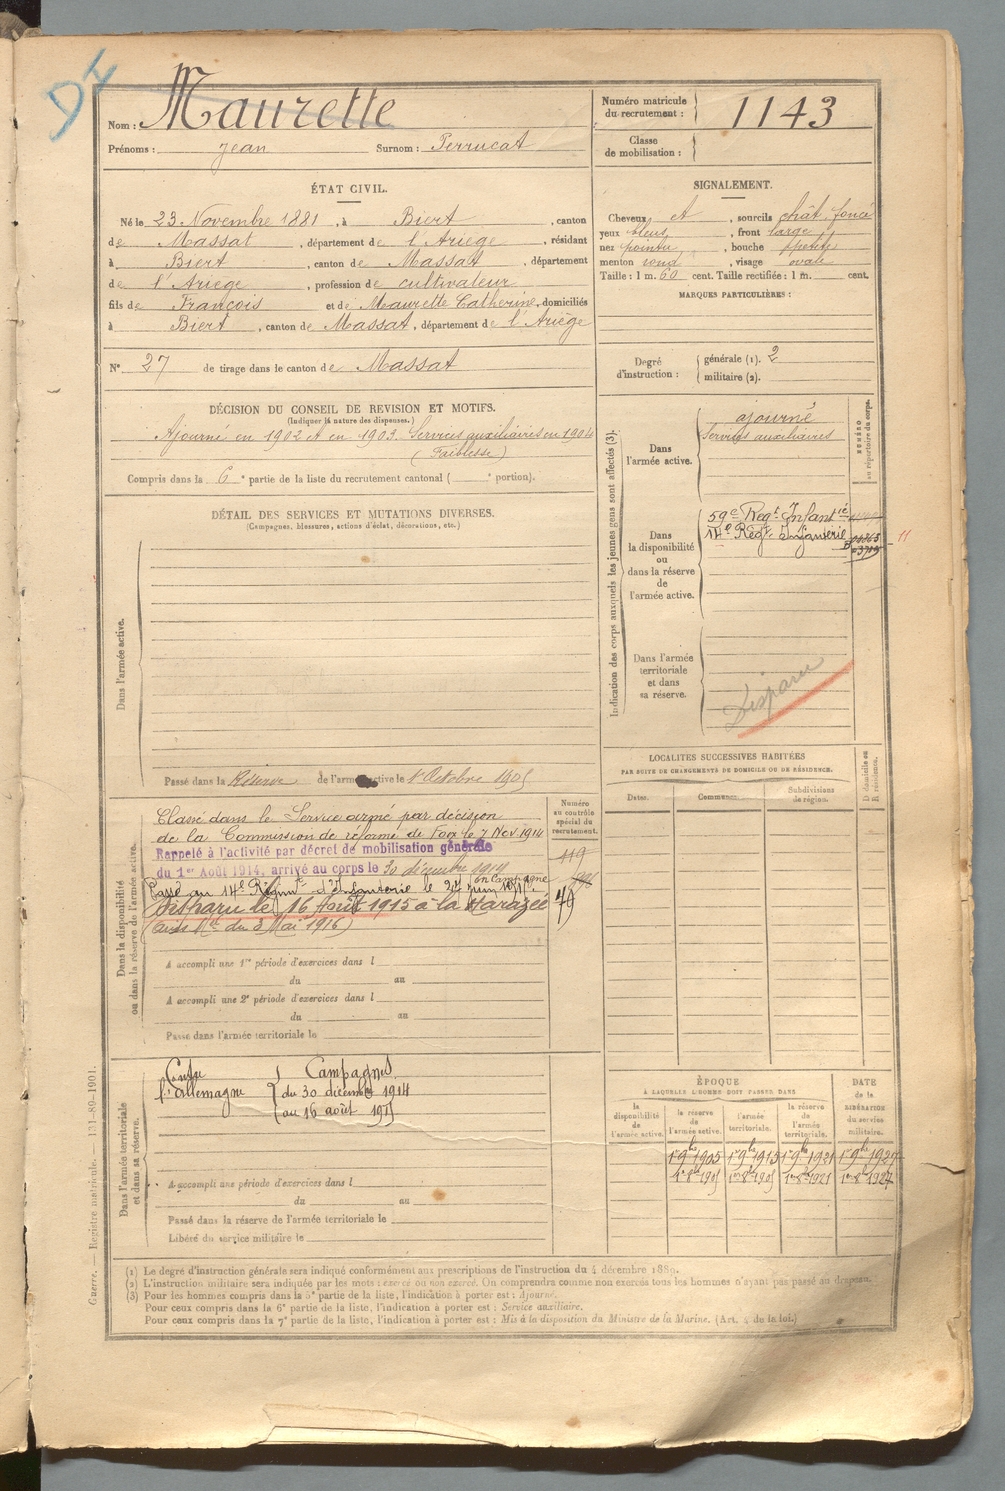 DI
Nom : Maurette
Prénoms : Jean Surnom : Perrucat
Numéro matricule
du recrutement : 1143
Classe
de mobilisation :
ÉTAT CIVIL.
Né le 23 Novembre 1881, à Biert, canton
de Massat, département de l'Ariège, résidant
à Biert, canton de Massat, département
de l'Ariège, profession de cultivateur
fils de François et de Maurette Catherine, domiciliés
à Biert, canton de Massat, département de l'Ariège
N° 27 de tirage dans le canton de Massat
SIGNALEMENT.
Cheveux et, sourcils chât. foncé
yeux bleus, front large
nez pointu, bouche petite
menton rond, visage ovale
Taille : 1 m. 60 cent. Taille rectifiée : 1 m. cent.
MARQUES PARTICULIÈRES :
Degré
d'instruction :
générale (1). 2
militaire (2).
DÉCISION DU CONSEIL DE REVISION ET MOTIFS.
(Indiquer la nature des dispenses.)
Ajourné en 1902 et en 1903. Services auxiliaires en 1904
(Faiblesse)
Compris dans la 6e partie de la liste du recrutement cantonal ( e portion).
DÉTAIL DES SERVICES ET MUTATIONS DIVERSES.
(Campagnes, blessures, actions d'éclat, décorations, etc.)
Dans l'armée active.
Passé dans la Réserve de l'armée active le 1er Octobre 1905
Indication des corps auxquels les jeunes gens sont affectés (3).
NUMÉRO
au répertoire du corps.
Dans
l'armée active.
ajourné
Services auxiliaires
Dans
la disponibilité
ou
dans la réserve
de
l'armée active.
59e Regt Infantie
14e Régt Infanterie
11
Dans l'armée
territoriale
et dans
sa réserve.
Disparu
LOCALITÉS SUCCESSIVES HABITÉES
PAR SUITE DE CHANGEMENTS DE DOMICILE OU DE RÉSIDENCE.
Dates. Communes. Subdivisions
de région.
D domicile ou
R résidence.
Dans la disponibilité
ou dans la réserve de l'armée active.
Numéro
au contrôle
spécial du
recrutement.
Classé dans le Service armé par décision
de la Commission de réforme de Foix le 7 Nov. 1914
Rappelé à l'activité par décret de mobilisation générale
du 1er Août 1914, arrivé au corps le 30 décembre 1914
en Campagne
Passé au 14e Régimt d'Infanterie le 24 juin 1915.
Disparu le 16 Août 1915 à la Harazée
(avis Mel du 3 Mai 1916)
119
A accompli une 1re période d'exercices dans l
du au
A accompli une 2e période d'exercices dans l
du au
Passé dans l'armée territoriale le
Dans l'armée territoriale
et dans sa réserve.
Campagnes
Contre
l'Allemagne
du 30 décembre 1914
au 16 août 1915
A accompli une période d'exercices dans l
du au
Passé dans la réserve de l'armée territoriale le
Libéré du service militaire le
ÉPOQUE
À LAQUELLE L'HOMME DOIT PASSER DANS
la
disponibilité
de
l'armée active.
la réserve
de
l'armée active.
l'armée
territoriale.
la réserve
de
l'armée
territoriale.
DATE
de la
LIBÉRATION
du service
militaire.
1er 9bre 1905 1er 9bre 1915 1er 9bre 1921 1er 9bre 1927
1er 8bre 1905 1er 8bre 1915 1er 8bre 1921 1er 8bre 1927
(1) Le degré d'instruction générale sera indiqué conformément aux prescriptions de l'instruction du 4 décembre 1889.
(2) L'instruction militaire sera indiquée par les mots : exercé ou non exercé. On comprendra comme non exercés tous les hommes n'ayant pas passé au drapeau.
(3) Pour les hommes compris dans la 5e partie de la liste, l'indication à porter est : Ajourné.
Pour ceux compris dans la 6e partie de la liste, l'indication à porter est : Service auxiliaire.
Pour ceux compris dans la 7e partie de la liste, l'indication à porter est : Mis à la disposition du Ministre de la Marine. (Art. 4 de la loi.)
Guerre. — Registre matricule. — 131-89-1901.